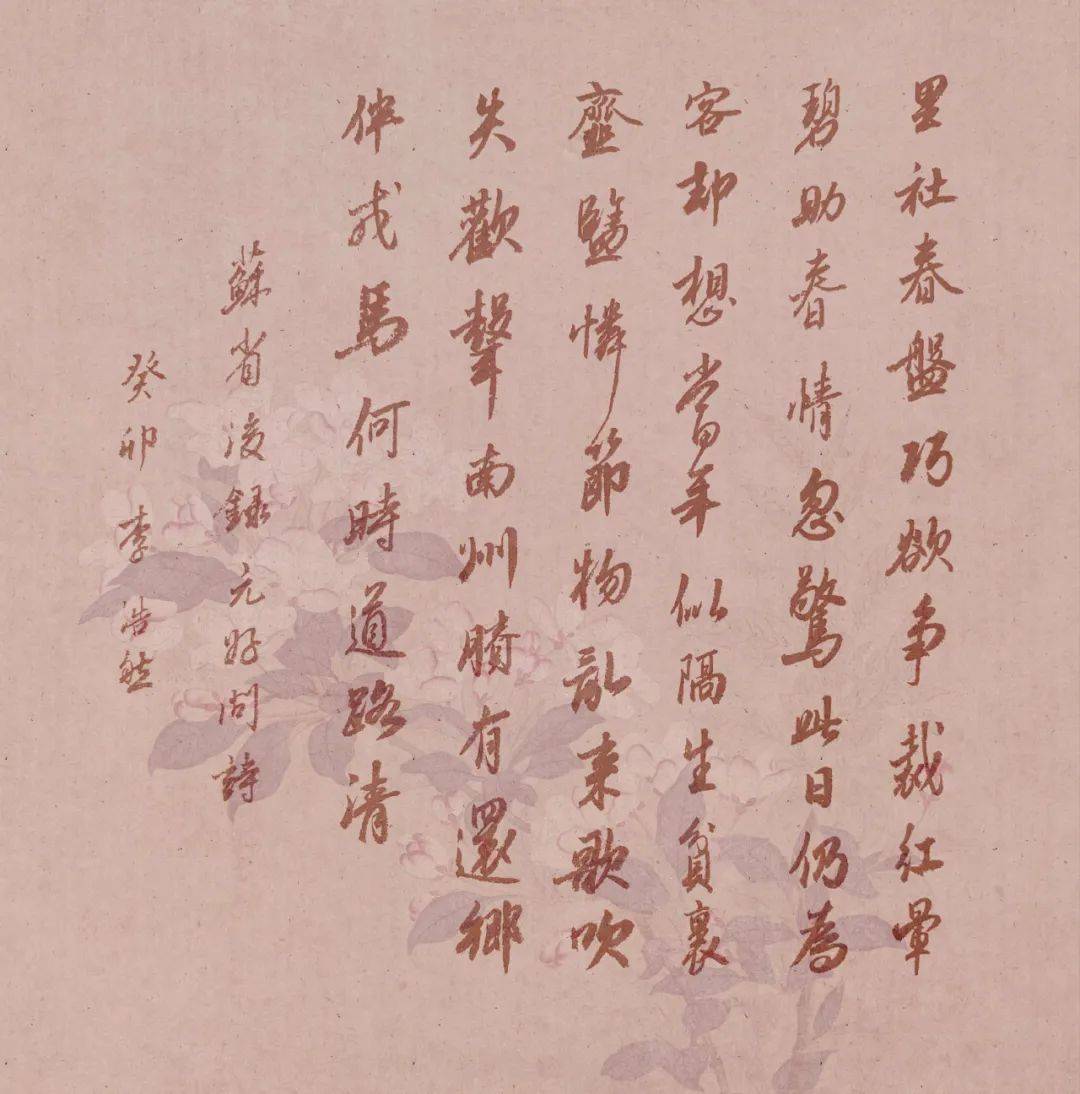 里社春盤巧欲争裁紅暈
碧助春情忽驚此日仍為
客却想當年似隔生貧裏
虀鹽憐節物亂来歌吹
失歡聲南州賸有還鄉
伴戎馬何時道路清
蘇省淩錄元好问詩
癸卯李浩然